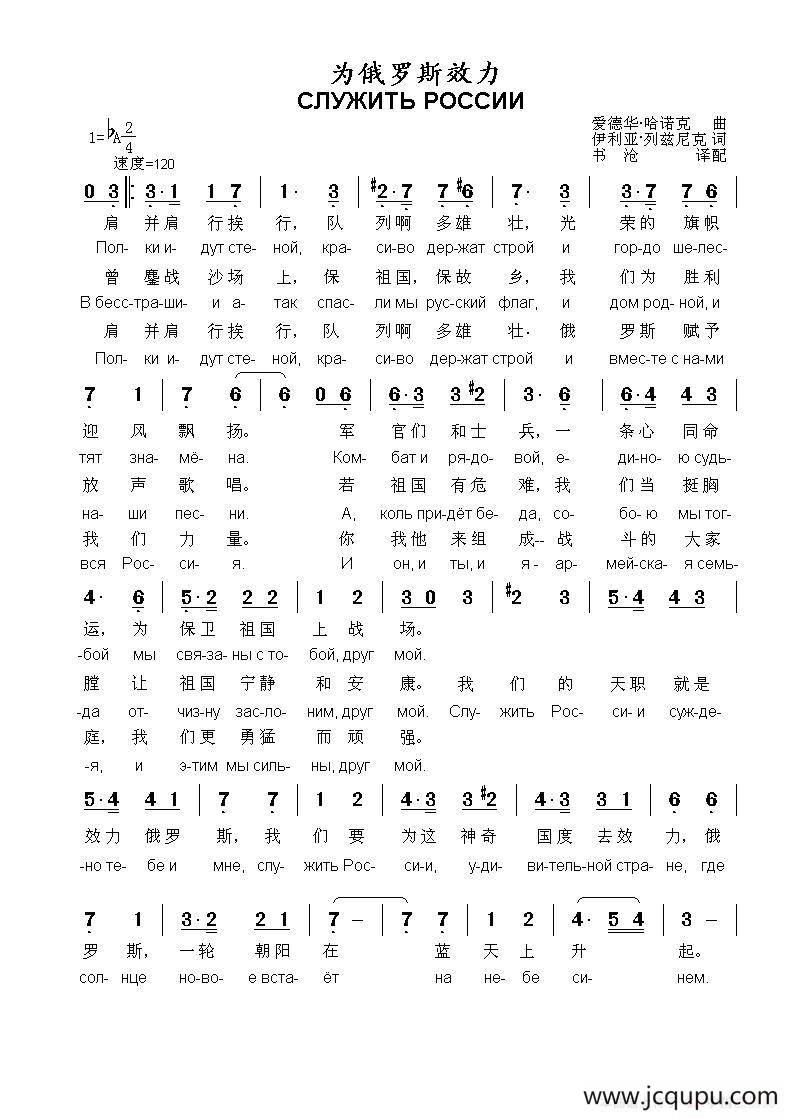 为俄罗斯效力
СЛУЖИТЬ РОССИИ
爱德华·哈诺克 曲
1=♭A 2/4
伊利亚·列兹尼克 词
速度=120
书沧 译配
0 3 ‖: 3·1 1 7 | 1· 3 | #2·7 7 #6 | 7· 3 | 3·7 7 6 |
肩 并肩 行挨 行，队 列啊 多雄 壮，光 荣的 旗帜
Пол- ки и- дут сте- ной, кра- си-во дер-жат строй и гор-до ше-лес-
曾 鏖战 沙场 上，保 祖国，保故 乡，我 们为 胜利
В бесс-тра-ши- и а- так спас- ли мы рус-ский флаг, и дом род-ной, и
肩 并肩 行挨 行，队 列啊 多雄 壮·俄 罗斯 赋予
Пол- ки и- дут сте- ной, кра- си-во дер-жат строй и вмес-те с на-ми
7 1 | 7 6 | 6 0 6 | 6·3 3 #2 | 3· 6 | 6·4 4 3 |
迎 风 飘 扬。 军 官们 和士 兵，一 条心 同命
тят зна- мё- на. Ком- бат и ря-до- вой, е- ди-но- ю судь-
放 声 歌 唱。 若 祖国 有危 难，我 们当 挺胸
на- ши пес- ни. А, коль при-дёт бе- да, со- бо- ю мы тог-
我 们 力 量。 你 我他 来组 成-- 战 斗的 大家
вся Рос- си- я. И он, и ты, и я - ар- мей-ска- я семь-
4· 6 | 5·2 2 2 | 1 2 | 3 0 3 | #2 3 | 5·4 4 3 |
运，为 保卫 祖国 上 战 场。
-бой мы свя-за- ны с то- бой, друг мой.
膛 让 祖国 宁静 和 安 康。 我 们 的 天职 就是
-да от- чиз-ну зас-ло- ним, друг мой. Слу- жить Рос- си-и суж-де-
庭，我 们更 勇猛 而 顽 强。
-я, и э-тим мы силь- ны, друг мой.
5·4 4 1 | 7 7 | 1 2 | 4·3 3 #2 | 4·3 3 1 | 6 6 |
效力 俄罗 斯，我 们 要 为这 神奇 国度 去效 力，俄
-но те- бе и мне, слу- жить Рос- си-и, у-ди- ви-тель-ной стра- не, где
7 1 | 3·2 2 1 | 7 – | 7 7 | 1 2 | 4· 5 4 | 3 – |
罗 斯，一轮 朝阳 在 蓝 天 上 升 起。
сол- нце но-во- е вста- ёт на не- бе си- нем.
www.jcqupu.com